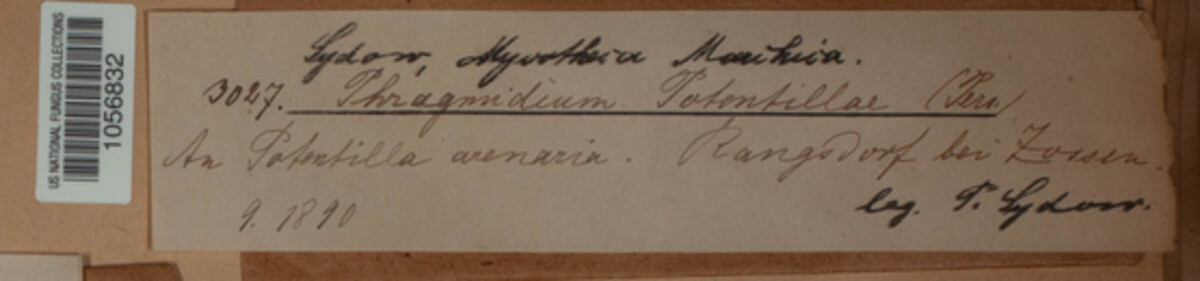 US NATIONAL FUNGUS COLLECTIONS
1056832
Sydow, Mycotheca Marchica.
3027. Phragmidium Potentillae (Pers.)
An Potentilla arenaria. Rangsdorf bei Zossen.
9. 1890
leg. P. Sydow.